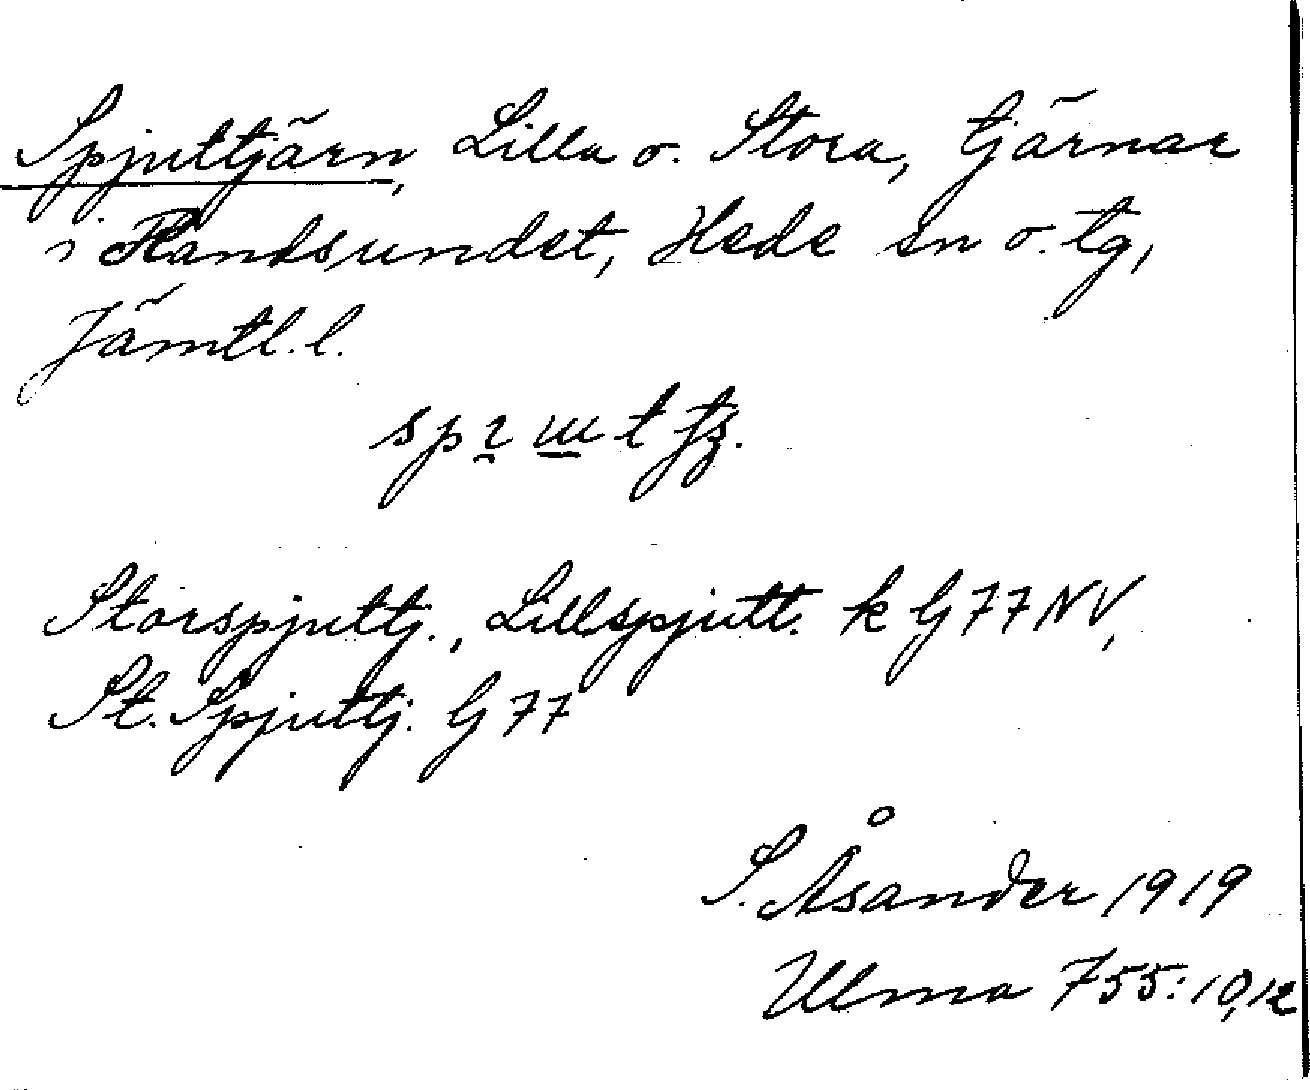 Spjuttjärn, Lilla o. Stora, tjärnar
i Randsundet, Hede sn o. tg,
Jämtl. l.
Storspjuttj., Lillspjutt. k G 77 NV,
St. Spjuttj. G 77
S. Åsander 1919
Ulma 755:10,12